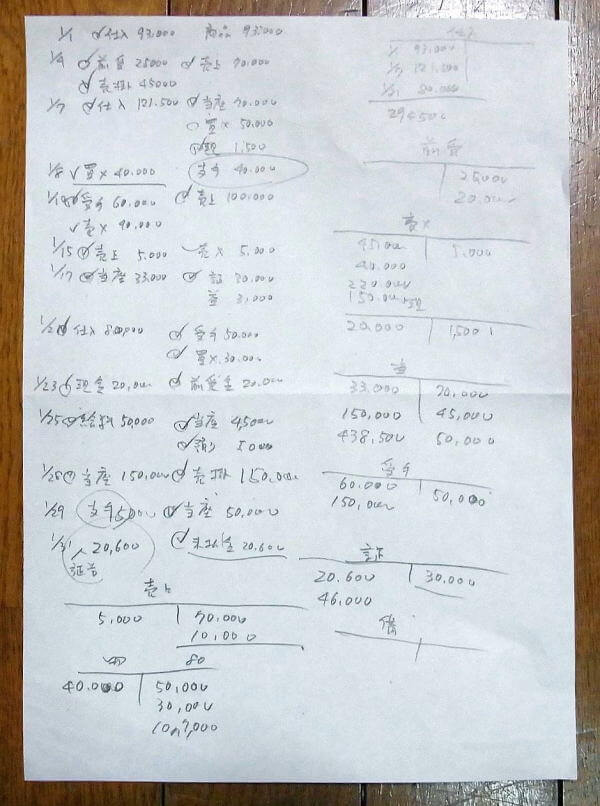 1/1 仕入 93,000 商品 93,000
1/4 前受 25000 売上 70,000
売掛 45000
1/7 仕入 121,500 当座 70,000
買× 50,000
現 1,500
1/8 買× 40,000 支手 40,000
受手 60,000 売上 100,000
売× 40,000
1/15 売上 5,000 売× 5,000
1/17 当座 33,000 証 30,000
益 3,000
仕入 80,000 受手 50,000
買× 30,000
1/23 現金 20,000 前受金 20,000
1/25 給料 50,000 当座 45,000
預り 5,000
1/28 当座 150,000 売掛 150,000
1/29 支手 50,000 当座 50,000
1/31 20,600 未払金 20,600
証券
売上
5,000 70,000
10,000
80
40,000 50,000
30,000
仕入
1/1 93,000
1/7 121,500
80,000
294500
前受
25,000
20,000
売×
45,000 5,000
40,000
220,000
150,000
20,000 1,500
当
33,000 70,000
150,000 45,000
438,500 50,000
受手
60,000 50,000
150,000
証
20,600 30,000
46,000
備